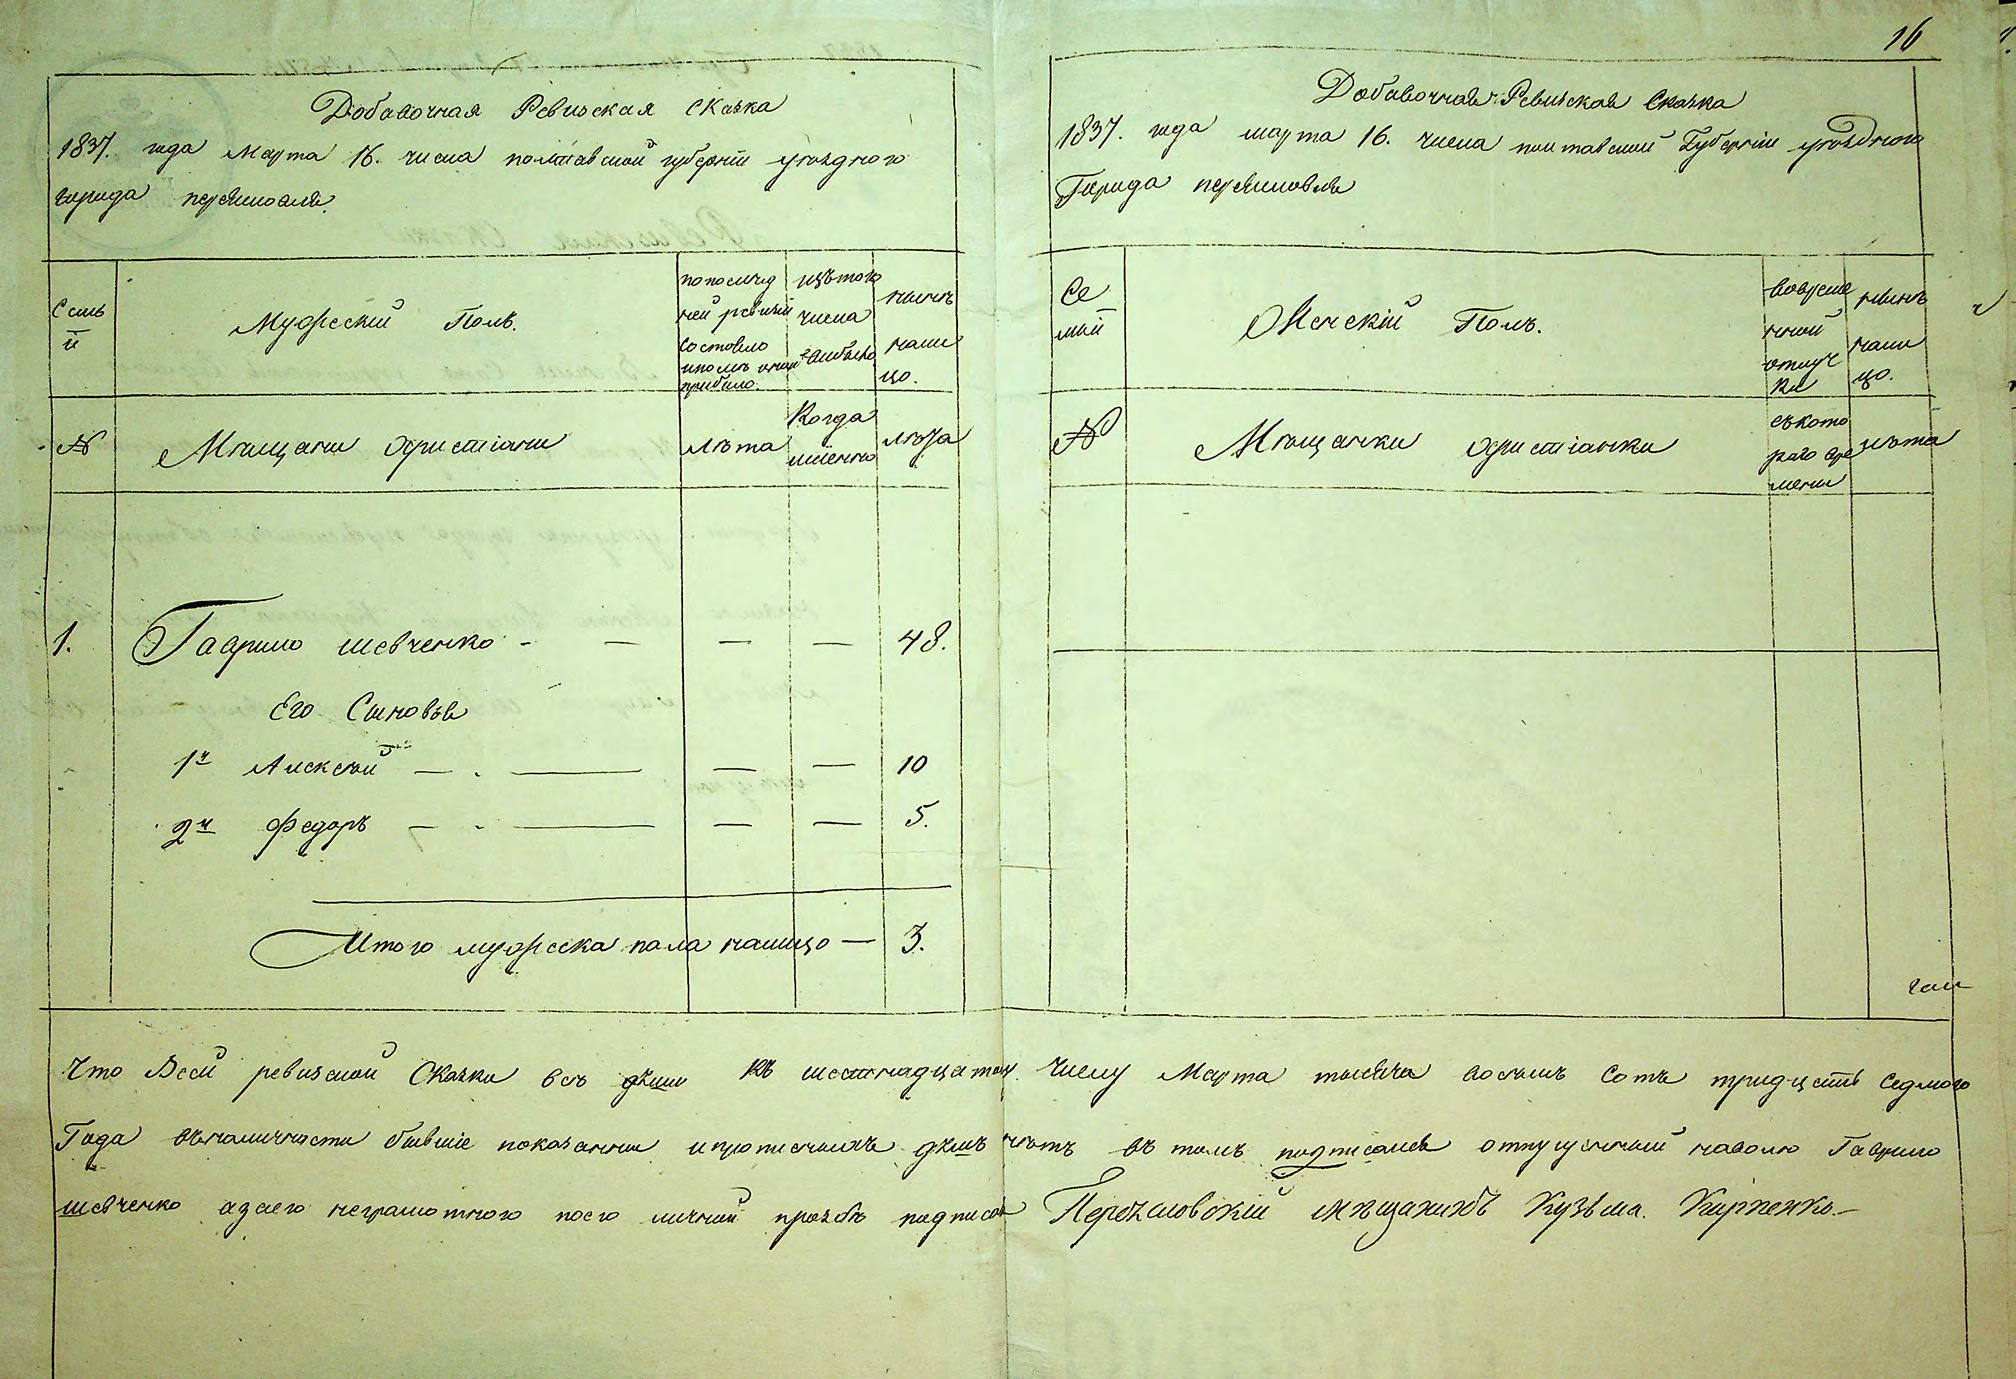 16
Добавочная Ревизская Сказка
1837. года марта 16. числа полтавской губернии уезднаго
города переяслова
Семь
и
Мужеский Полъ.
по послед
ней ревизии
состояло
и после оной
прибыло.
изъ того
числа
выбыло
ныне
нали
цо.
№
Мещани христiани
лета
Когда
имянно
лета
1. Гаврило шевченко - — — — 48.
Его Сыновья
1й Алексей — - — — — 10
2й Федоръ — - — — — 5.
Итого мужеска пола налицо — 3.
Добавочная Ревизская Сказка
1837. года марта 16. числа полтавской Губернiи уезднаго
Города переяслова
Се
мьи
Женскiй Полъ.
во време
нной
отлуч
ке
ныне
нали
цо.
№
Мещанки христiанки
съ кото
раго вре
мени
лета
Что Всей ревизской Сказки все души къ шестнадцатому Числу Марта тысяча восемь Сотъ тридцать седмого
Года въ наличности бывшiе показанни и прописныхъ душъ нетъ въ томъ подписался отпущенный наволю Гаврило
шевченко а за его неграмотного по его личной прозбе подписал Переяславскiй мещанинъ Кузьма Кирпенко.—